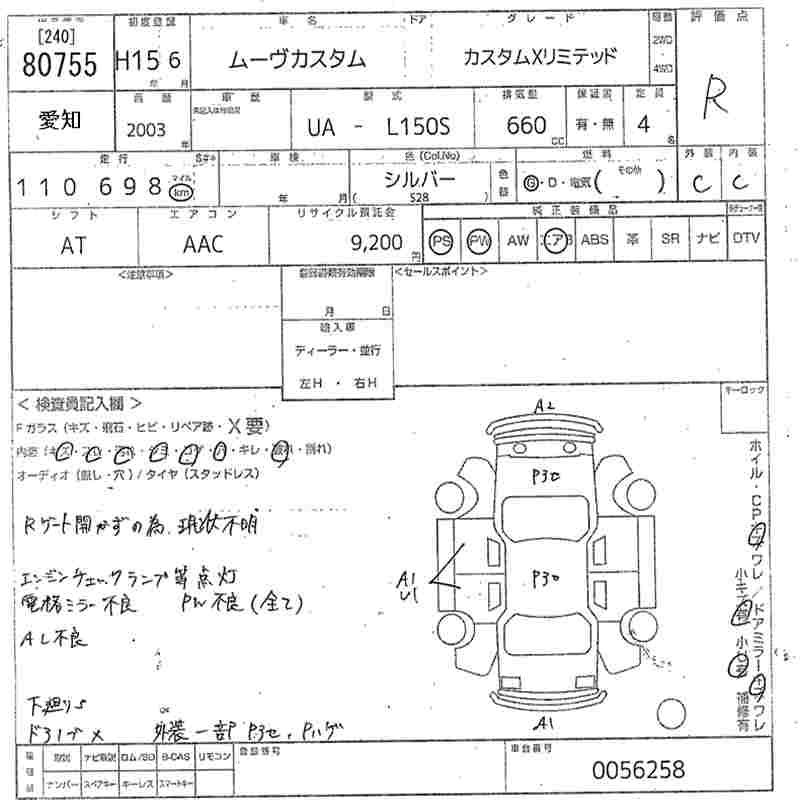 初度登録 車名 ドア グレード 評価点
[240]
80755 H15 6 ムーヴカスタム カスタムXリミテッド R
年 月 2WD 4WD
愛知 車歴 型式 排気量 保証書 定員
2003 年 UA - L150S 660 CC 有・無 4 名
走行 車検 色(Col.No) 燃料 その他 外装 内装
110 698 マイル km 年 月 シルバー S28 G・D・電気( ) C C
シフト エアコン リサイクル預託金 純正装備品
AT AAC 9,200 円 PS PW AW エアB ABS 革 SR ナビ DTV
<注意事項> <セールスポイント>
月 日
輸入車
ディーラー・並行
左H ・ 右H
キーロック
<検査員記入欄>
Fガラス (キズ・飛石・ヒビ・リペア跡・X要)
オーディオ (無し・穴) / タイヤ (スタッドレス)
Rゲート開かずの為、現状不明
エンジンチェックランプ等点灯
電格ミラー不良 PW不良(全て)
AL不良
下廻りS
外装一部P3セ、Pハゲ
A2
P3セ
P3セ
A1
U1
A1
登録番号 車台番号
ナビ取説 ロム/SD B-CAS リモコン
ナンバー スペアキー キーレス スマートキー
0056258